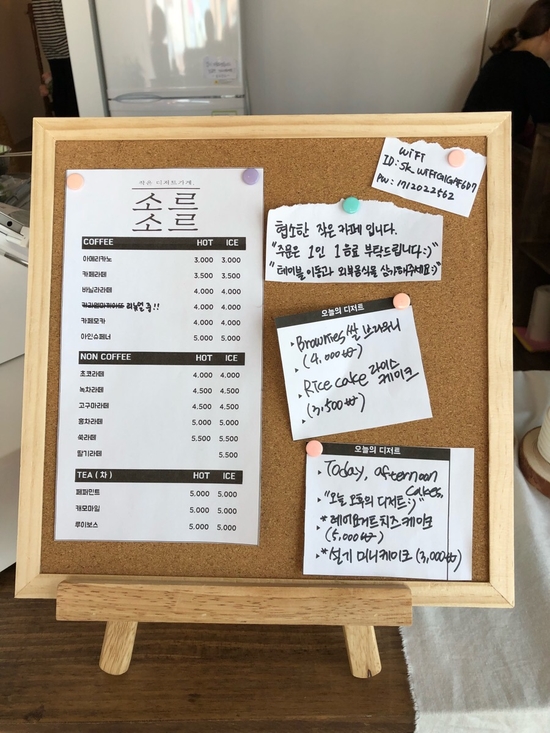 작은 디저트가게
소르
소르
COFFEE HOT ICE
아메리카노 3.000 3.000
카페라떼 3.500 3.500
바닐라라떼 4.000 4.000
카라멜마끼아또 리뉴얼 중!! 4.000 4.000
카페모카 4.000 4.000
아인슈페너 5.000 5.000
NON COFFEE HOT ICE
초코라떼 4.000 4.000
녹차라떼 4.500 4.500
고구마라떼 4.500 4.500
홍차라떼 5.000 5.000
쑥라떼 5.500 5.500
딸기라떼 5.500
TEA ( 차 ) HOT ICE
페퍼민트 5.000 5.000
캐모마일 5.000 5.000
루이보스 5.000 5.000
WiFi
PW: 1712022562
협소한 작은 카페 입니다.
"주문은 1인 1음료 부탁드립니다:)"
"테이블 이동과 외부음식을 삼가해주세요:)"
오늘의 디저트
Brownies 쌀 브라우니
(4,000₩)
Rice cake 라이스
케이크
(3,500₩)
오늘의 디저트
Today, afternoon
cakes,
"오늘 오후의 디저트:)"
*레이요거트치즈케이크
(5,000₩)
*설기 미니케이크 (3,000₩)